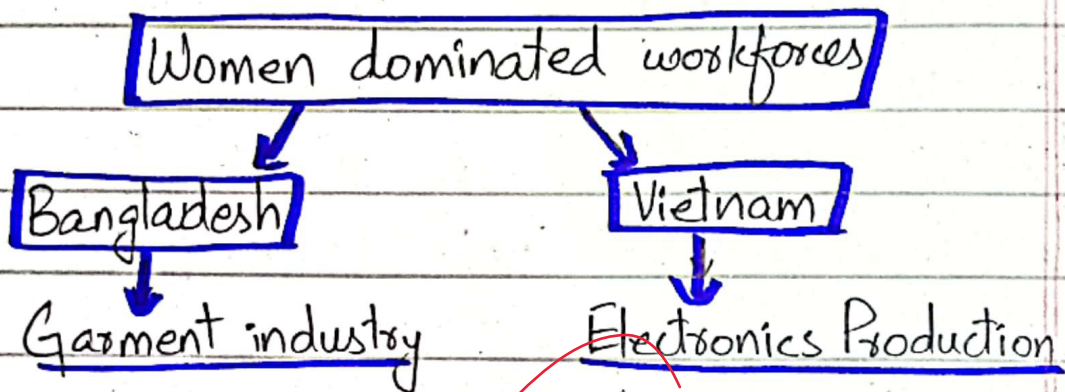 Women dominated workforces
Bangladesh Vietnam
Garment industry Electronics Production